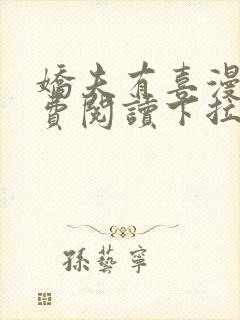 嬌夫有喜漫
費閱讀下拉
孫藝寧